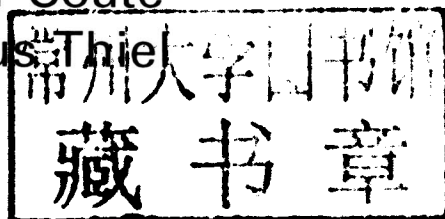 Thiel
常州大学图书馆
藏书章